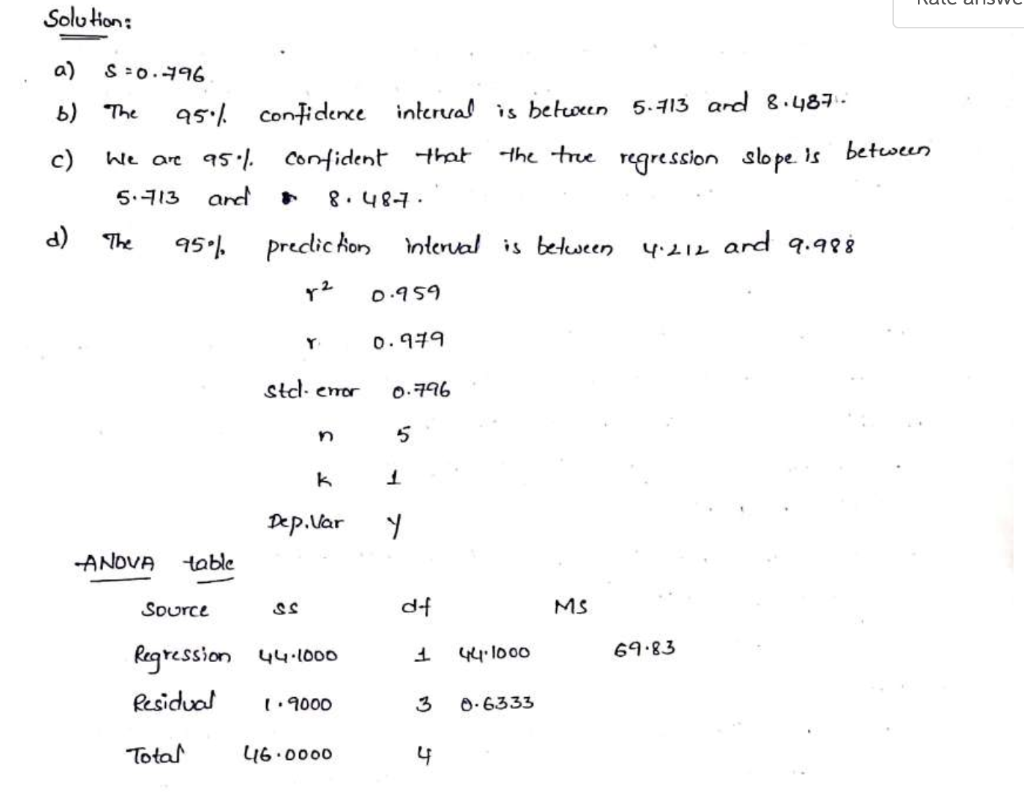 Solution:
a) S=0.796
b) The 95% confidence interval is between 5.713 and 8.487.
c) We are 95% confident that the true regression slope is between
5.713 and 8.487.
d) The 95% prediction interval is between 4.212 and 9.988
r² 0.959
r 0.979
std. error 0.796
n 5
k 1
Dep.Var Y
ANOVA table
Source SS df MS
Regression 44.1000 1 44.1000 69.83
Residual 1.9000 3 0.6333
Total 46.0000 4